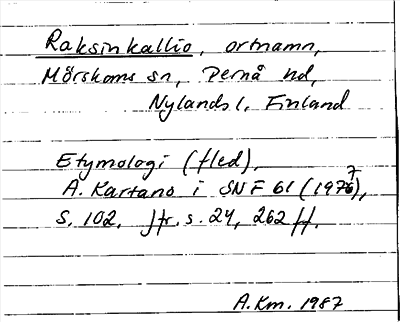 Raksinkallio, ortnamn,
Mörskoms sn, Pernå hd,
Nylands l, Finland
Etymologi (fled),
A. Kartano i SNF 61 (1977),
S. 102. Jfr. s. 24, 262 ff.
A.Km. 1987